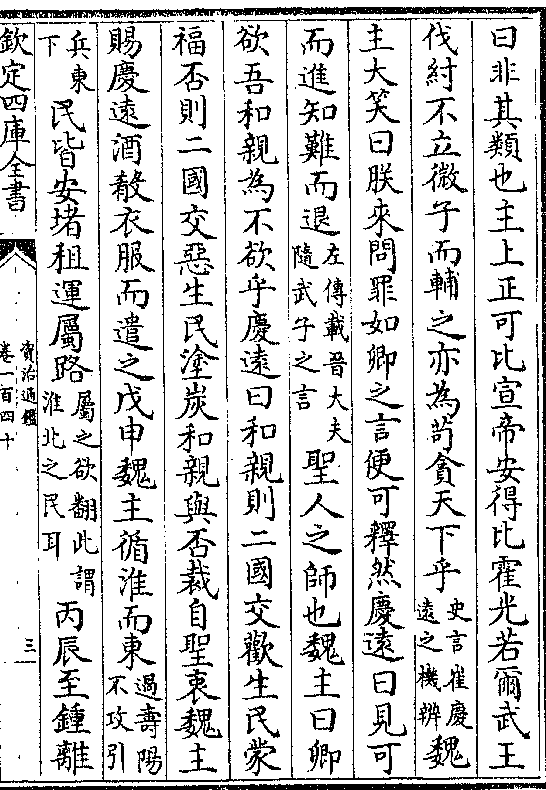 曰非其類也主上正可比宣帝安得比霍光若爾武王
伐紂不立微子而輔之亦為苟貪天下乎史言崔慶遠之機辨魏
主大笑曰朕來問罪如卿之言便可釋然慶遠曰見可
而進知難而退左傳載晉大夫隨武子之言聖人之師也魏主曰卿
欲吾和親為不欲乎慶遠曰和親則二國交歡生民蒙
福否則二國交惡生民塗炭和親與否裁自聖衷魏主
賜慶遠酒殽衣服而遣之戊申魏主循淮而東過壽陽不攻引
兵東下民皆安堵租運屬路屬之欲翻此謂淮北之民耳丙辰至鍾離
欽定四庫全書
資治通鑑
卷一百四十
三